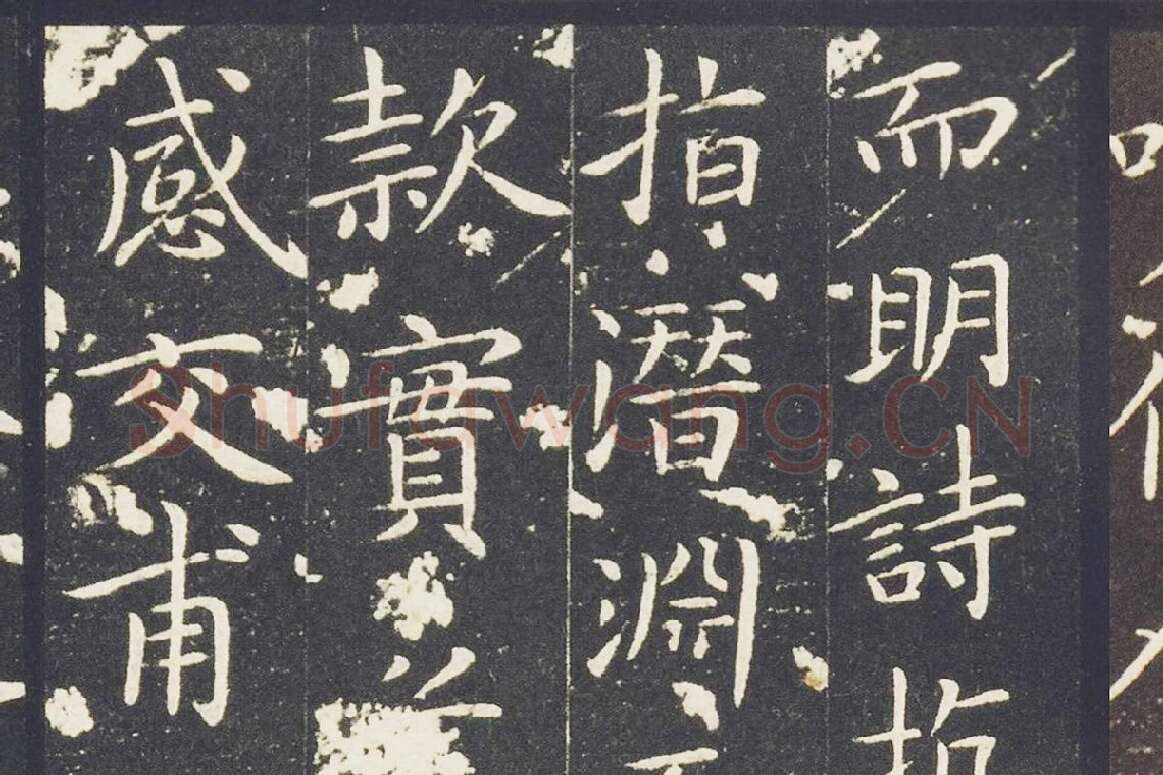 而明詩
指潛淵
款實
感交甫
Shufawang.CN